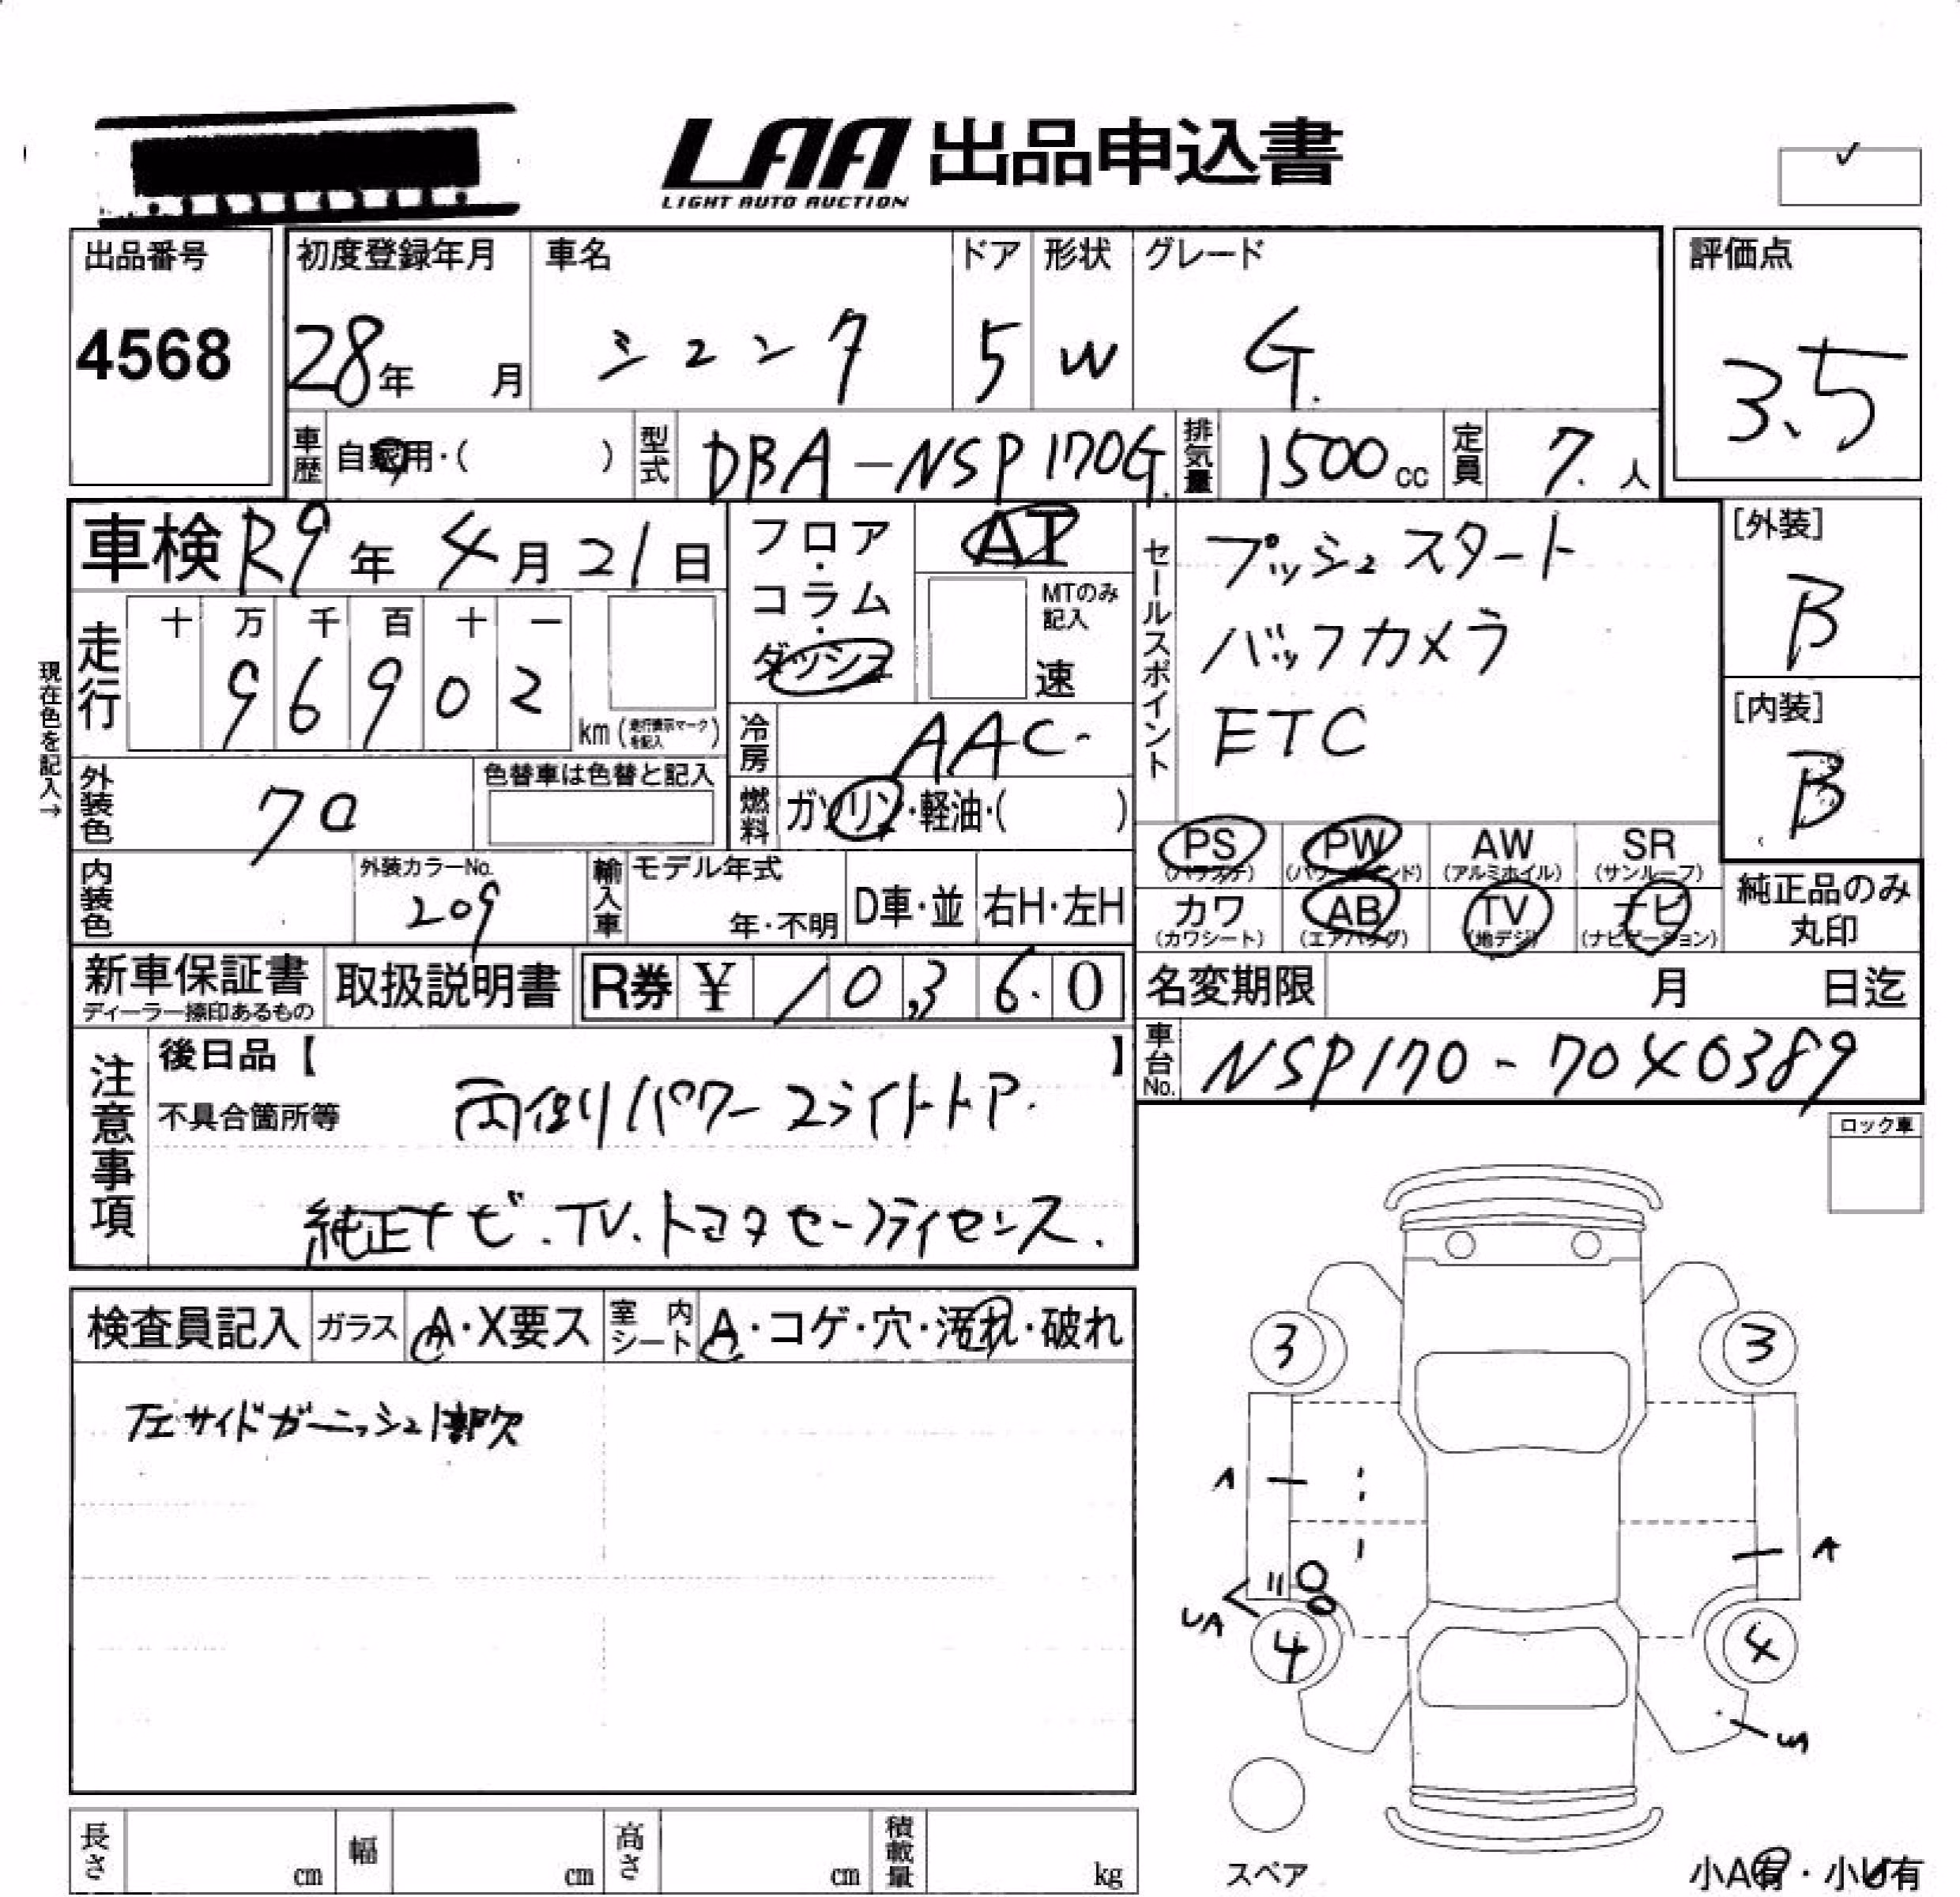 LAA 出品申込書
LIGHT AUTO AUCTION
出品番号 初度登録年月 車名 ドア 形状 グレード 評価点
4568 28年 月 シエンタ 5 W G. 3.5
車歴 自家用・( ) 型式 DBA-NSP170G 排気量 1500cc 定員 7.人
車検 R9年 4月21日
走行 十 万 千 百 十 一
96902
km(走行表示マークを記入)
現在色を記入→
フロア・コラム・ダッシュ
AT
MTのみ記入
速
冷房 AAC
燃料 ガソリン・軽油・( )
セールスポイント
プッシュスタート
バックカメラ
ETC
[外装]
B
[内装]
B
外装色 クロ 色替車は色替と記入
内装色 外装カラーNo. 209
輸入車 モデル年式 年・不明 D車・並 右H・左H
PS (パワステ) PW (パワーウインド) AW (アルミホイル) SR (サンルーフ)
カワ (カワシート) AB (エアバッグ) TV (地デジ) ナビ (ナビゲーション)
純正品のみ
丸印
新車保証書 ディーラー捺印あるもの 取扱説明書 R券 ¥ 10,360
名変期限 月 日迄
車台No. NSP170-7040389
注意事項
後日品【 】
不具合箇所等 両側パワースライドドア.
純正ナビ.TV.トヨタセーフティセンス.
ロック車
検査員記入 ガラス A・X要ス 室内シート A・コゲ・穴・汚れ・破れ
左サイドガーニッシュ1部欠
3 3
A
A
UA
4 4
スペア
小A有・小U有
長さ cm 幅 cm 高さ cm 積載量 kg